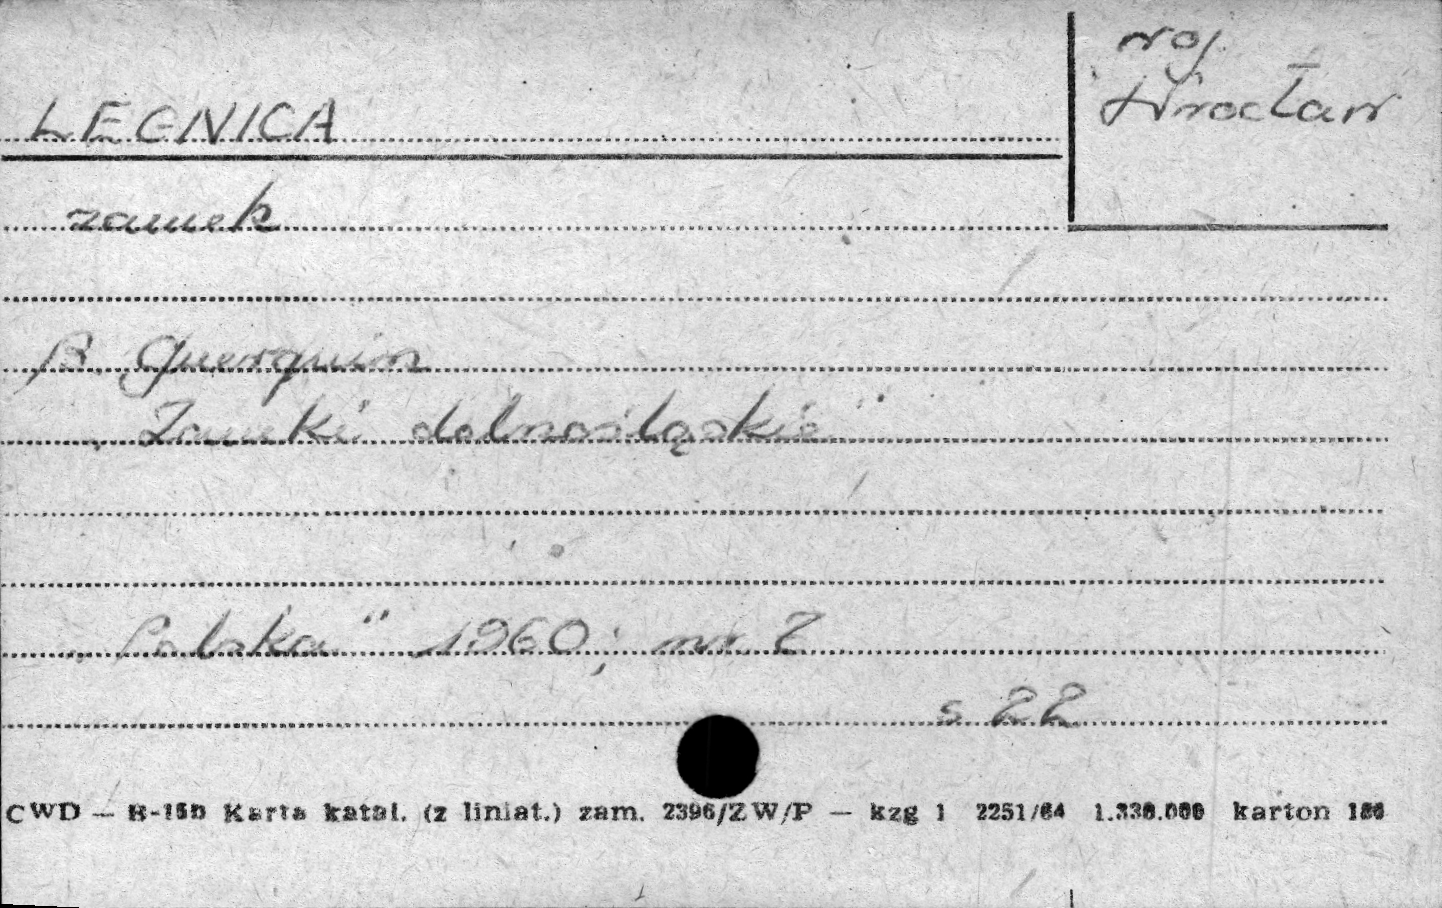 woj.
Wrocław
LEGNICA
zamek
B. Guerquin
„Zamki dolnośląskie"
„Polska" 1960; nr 2
s 22
CWD — B-150 Karta katal. (z liniat.) zam. 2396/ZW/P — kzg 1 2251/64 1.330.000 karton